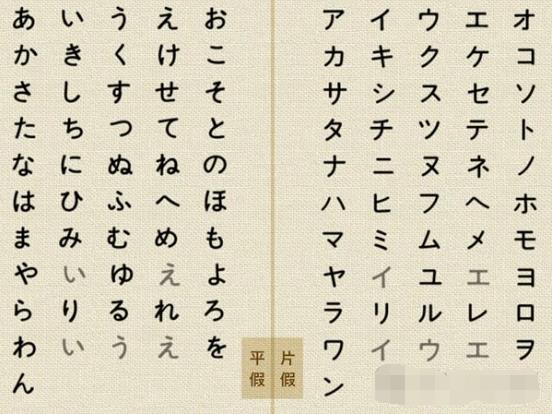 あ い う え お
か き く け こ
さ し す せ そ
た ち つ て と
な に ぬ ね の
は ひ ふ へ ほ
ま み む め も
や い ゆ え よ
ら り る れ ろ
わ い う え を
ん
平假
ア イ ウ エ オ
カ キ ク ケ コ
サ シ ス セ ソ
タ チ ツ テ ト
ナ ニ ヌ ネ ノ
ハ ヒ フ ヘ ホ
マ ミ ム メ モ
ヤ イ ユ エ ヨ
ラ リ ル レ ロ
ワ イ ウ エ ヲ
ン
片假